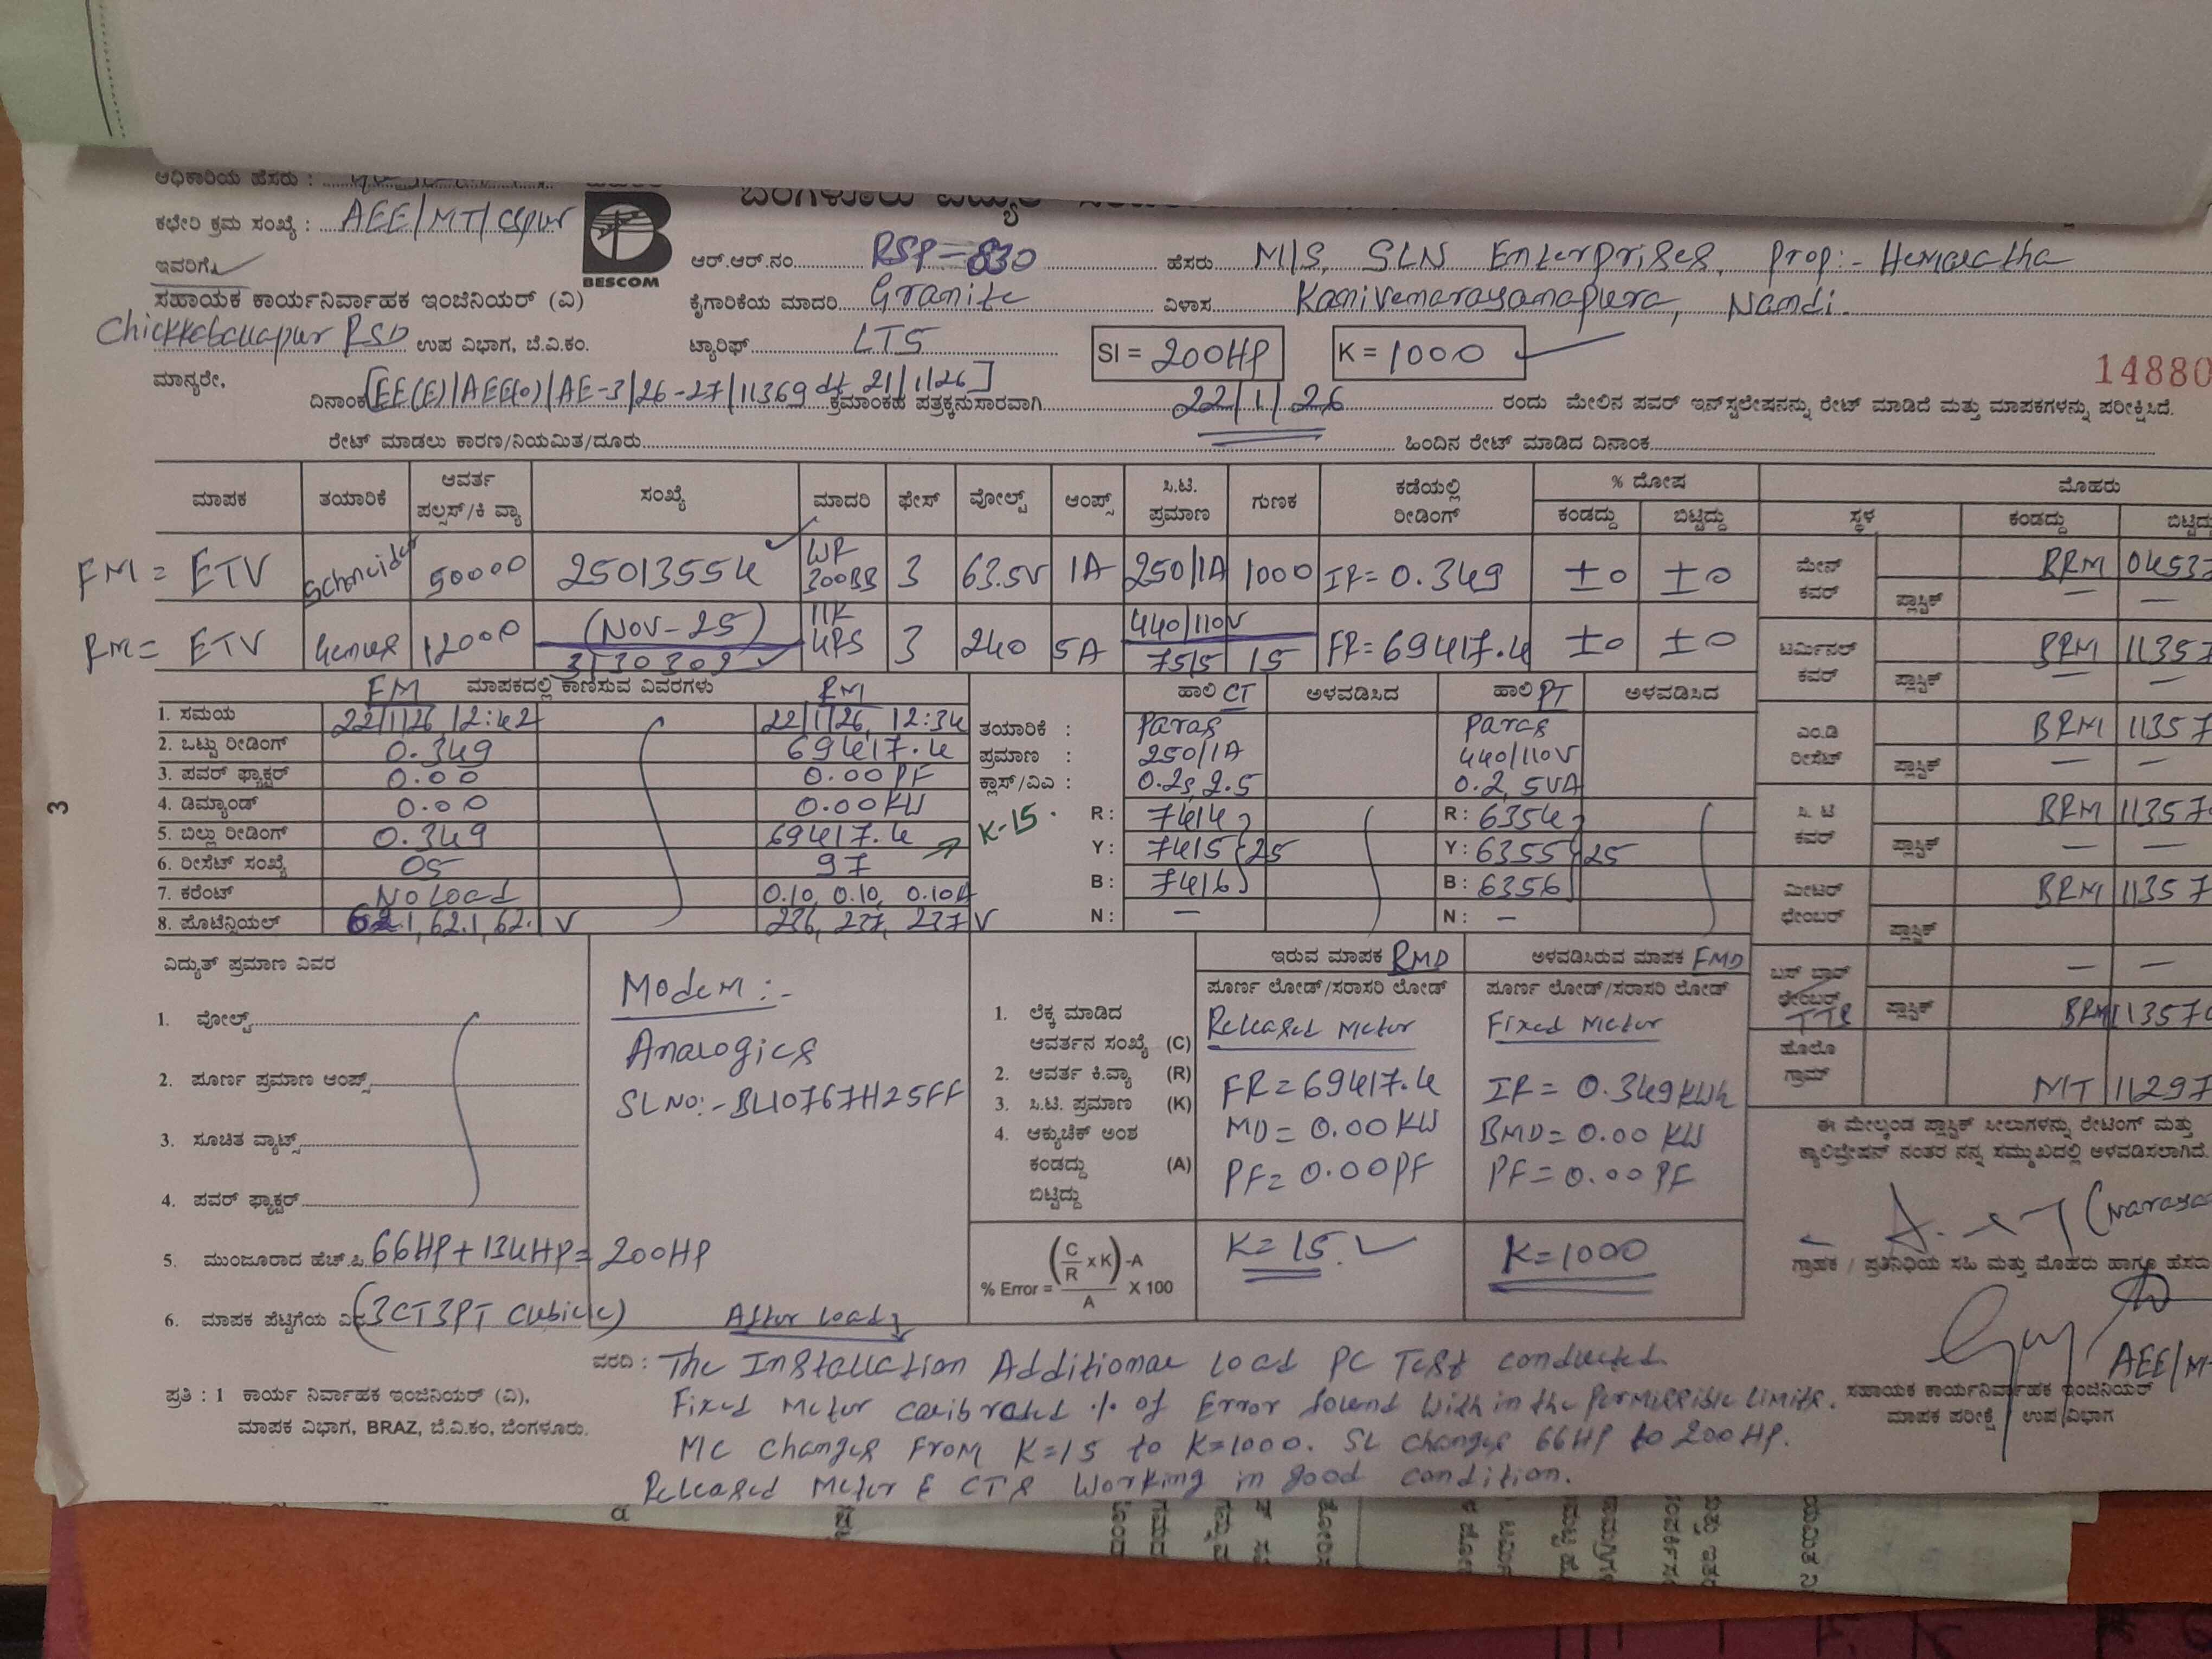 ಅಧಿಕಾರಿಯ ಹೆಸರು :
ಕಛೇರಿ ಕ್ರಮ ಸಂಖ್ಯೆ : AEE/MT/CBpur
ಇವರಿಗೆ,
ಸಹಾಯಕ ಕಾರ್ಯನಿರ್ವಾಹಕ ಇಂಜಿನಿಯರ್ (ವಿ)
Chickkaballapur RSD ಉಪ ವಿಭಾಗ, ಬೆ.ವಿ.ಕಂ.
ಮಾನ್ಯರೇ,
BESCOM
ಆರ್.ಆರ್.ನಂ. RSP-830 ಹೆಸರು M/S, SLN Enterprises, Prop:- Hemalatha
ಕೈಗಾರಿಕೆಯ ಮಾದರಿ Granite ವಿಳಾಸ Kanivenarayanapura, Nandi.
ಟ್ಯಾರಿಫ್ LT5 SI = 200HP K = 1000
14880
ದಿನಾಂಕ [EE(E)/AEE(O)/AE-3/26-27/11369 dt 21/1/26] ಕ್ರಮಾಂಕಹ ಪತ್ರಕ್ಕನುಸಾರವಾಗಿ 22/1/26 ರಂದು ಮೇಲಿನ ಪವರ್ ಇನ್‌ಸ್ಟಲೇಷನನ್ನು ರೇಟ್ ಮಾಡಿದೆ ಮತ್ತು ಮಾಪಕಗಳನ್ನು ಪರೀಕ್ಷಿಸಿದೆ.
ರೇಟ್ ಮಾಡಲು ಕಾರಣ/ನಿಯಮಿತ/ದೂರು ಹಿಂದಿನ ರೇಟ್ ಮಾಡಿದ ದಿನಾಂಕ
ಮಾಪಕ ತಯಾರಿಕೆ ಆವರ್ತ ಪಲ್ಸಸ್/ಕಿ ವ್ಯಾ ಸಂಖ್ಯೆ ಮಾದರಿ ಫೇಸ್ ವೋಲ್ಟ್ ಆಂಪ್ಸ್ ಸಿ.ಟಿ. ಪ್ರಮಾಣ ಗುಣಕ ಕಡೆಯಲ್ಲಿ ರೀಡಿಂಗ್ % ದೋಷ ಕಂಡದ್ದು ಬಿಟ್ಟಿದ್ದು ಮೊಹರು ಸ್ಥಳ ಕಂಡದ್ದು
FM = ETV Schneider 50000 25013554 3 63.5V 1A 250/1A 1000 IR= 0.349 ±0 ±0
(NOV-25) 440/110V
RM = ETV Genus 12000 3 240 5A 75/5 15 FR= 69417.4 ±0 ±0
ಮೇನ್ ಕವರ್ BRM 04537
ಪ್ಲಾಸ್ಟಿಕ್ — —
ಟರ್ಮಿನಲ್ ಕವರ್ BRM 11357
ಪ್ಲಾಸ್ಟಿಕ್ — —
ಎಂ.ಡಿ ರೀಸೆಟ್ BRM 11357
ಪ್ಲಾಸ್ಟಿಕ್ — —
ಸಿ. ಟಿ ಕವರ್ BRM 11357
ಪ್ಲಾಸ್ಟಿಕ್ — —
ಮೀಟರ್ ಛೇಂಬರ್ BRM 11357
ಪ್ಲಾಸ್ಟಿಕ್
ಬಸ್ ಬಾರ್ ಛೇಂಬರ್ — —
ಪ್ಲಾಸ್ಟಿಕ್ BRM 11357
ಹೊಲೊ ಗ್ರಾಮ್ MT 11297
FM ಮಾಪಕದಲ್ಲಿ ಕಾಣಿಸುವ ವಿವರಗಳು RM
1. ಸಮಯ 22/1/26 12:42 22/1/26, 12:34
2. ಒಟ್ಟು ರೀಡಿಂಗ್ 0.349 69417.4
3. ಪವರ್ ಫ್ಯಾಕ್ಟರ್ 0.00 0.00PF
4. ಡಿಮ್ಯಾಂಡ್ 0.00 0.00KW
5. ಬಿಲ್ಲು ರೀಡಿಂಗ್ 0.349 69417.4
K-15
6. ರೀಸೆಟ್ ಸಂಖ್ಯೆ 05 97
7. ಕರೆಂಟ್ No Load 0.10, 0.10, 0.10A
8. ಪೊಟೆನ್ಶಿಯಲ್ 62.1, 62.1, 62.1V 236, 237, 237V
ಹಾಲಿ CT ಅಳವಡಿಸಿದ ಹಾಲಿ PT ಅಳವಡಿಸಿದ
ತಯಾರಿಕೆ : Paras Paras
ಪ್ರಮಾಣ : 250/1A 440/110V
ಕ್ಲಾಸ್/ವಿಎ : 0.2s, 2.5 0.2, 5VA
R: 7414 R: 6354
Y: 7415 25 Y: 6355 25
B: 7416 B: 6356
N: — N: —
ವಿದ್ಯುತ್ ಪ್ರಮಾಣ ವಿವರ
1. ವೋಲ್ಟ್
2. ಪೂರ್ಣ ಪ್ರಮಾಣ ಆಂಪ್ಸ್
3. ಸೂಚಿತ ವ್ಯಾಟ್ಸ್
4. ಪವರ್ ಫ್ಯಾಕ್ಟರ್
5. ಮುಂಜೂರಾದ ಹೆಚ್.ಪಿ. 66HP+134HP=200HP
6. ಮಾಪಕ ಪೆಟ್ಟಿಗೆಯ (3CT3PT Cubicle)
Modem:-
Analogics
SL NO:- BL10767H25FF
ಇರುವ ಮಾಪಕ RMD ಅಳವಡಿಸಿರುವ ಮಾಪಕ FMD
ಪೂರ್ಣ ಲೋಡ್/ಸರಾಸರಿ ಲೋಡ್ ಪೂರ್ಣ ಲೋಡ್/ಸರಾಸರಿ ಲೋಡ್
1. ಲೆಕ್ಕ ಮಾಡಿದ ಆವರ್ತನ ಸಂಖ್ಯೆ (C) Released Meter Fixed Meter
2. ಆವರ್ತ ಕಿ.ವ್ಯಾ (R) FR=69417.4 IR= 0.349KWh
3. ಸಿ.ಟಿ. ಪ್ರಮಾಣ (K)
4. ಆಕ್ಯುಚೆಕ್ ಅಂಶ MD= 0.00KW BMD= 0.00 KW
ಕಂಡದ್ದು (A) PF= 0.00PF PF= 0.00PF
ಬಿಟ್ಟಿದ್ದು
% Error = (C/R x K) -A / A X 100 K=15 K=1000
ಈ ಮೇಲ್ಕಂಡ ಪ್ಲಾಸ್ಟಿಕ್ ಸೀಲುಗಳನ್ನು ರೇಟಿಂಗ್ ಮತ್ತು
ಕ್ಯಾಲಿಬ್ರೇಷನ್ ನಂತರ ನನ್ನ ಸಮ್ಮುಖದಲ್ಲಿ ಅಳವಡಿಸಲಾಗಿದೆ.
ಗ್ರಾಹಕ / ಪ್ರತಿನಿಧಿಯ ಸಹಿ ಮತ್ತು ಮೊಹರು ಹಾಗೂ ಹೆಸರು
After load
ವರದಿ : The Installation Additional Load PC Test conducted
Fixed Meter calibrated % of Error found within the Permissible Limits.
MC changes From K=15 to K=1000. SL changes 66HP to 200HP.
Released Meter & CTs Working in good condition.
ಪ್ರತಿ : 1 ಕಾರ್ಯ ನಿರ್ವಾಹಕ ಇಂಜಿನಿಯರ್ (ವಿ),
ಮಾಪಕ ವಿಭಾಗ, BRAZ, ಬೆ.ವಿ.ಕಂ, ಬೆಂಗಳೂರು.
AEE/M
ಸಹಾಯಕ ಕಾರ್ಯನಿರ್ವಾಹಕ ಇಂಜಿನಿಯರ್
ಮಾಪಕ ಪರೀಕ್ಷೆ ಉಪ ವಿಭಾಗ
3